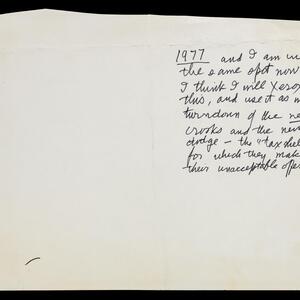 1977 and I am in
the same spot now
I think I will Xerox
this, and use it as m
turndown of the ne
crooks and the new
dodge - the "tax shel
for which they mak
their unacceptable offer